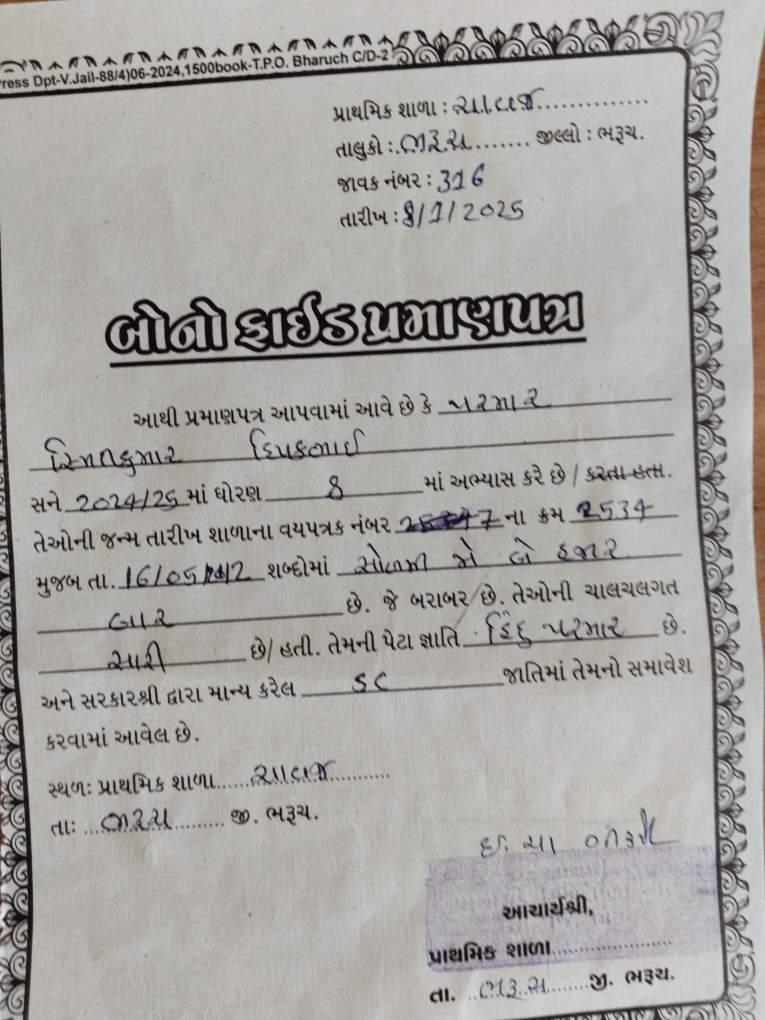 ress Dpt-V.Jail-88/4)06-2024,1500book-T.P.O. Bharuch C/D-2
પ્રાથમિક શાળા : સામલોજ
તાલુકો : ભરૂચ જીલ્લો : ભરૂચ.
જાવક નંબર : 316
તારીખ : 8/1/2025
બોનોફાઈડ પ્રમાણપત્ર
આથી પ્રમાણપત્ર આપવામાં આવે છે કે પરમાર
સ્મિતકુમાર દિપકભાઈ
સને 2024/25 માં ધોરણ 8 માં અભ્યાસ કરે છે / કરતા હતા.
તેઓની જન્મ તારીખ શાળાના વયપત્રક નંબર 7 ના ક્રમ 2534
મુજબ તા. 16/05/2012 શબ્દોમાં સોળમી મે બે હજાર
બાર છે. જે બરાબર છે. તેઓની ચાલચલગત
સારી છે/ હતી. તેમની પેટા જ્ઞાતિ હિંદુ પરમાર છે.
અને સરકારશ્રી દ્વારા માન્ય કરેલ SC જાતિમાં તેમનો સમાવેશ
કરવામાં આવેલ છે.
સ્થળ: પ્રાથમિક શાળા
તા: ભરૂચ જી. ભરૂચ.
ઈ. ચા
આચાર્યશ્રી,
પ્રાથમિક શાળા
તા. ભરૂચ જી. ભરૂચ.